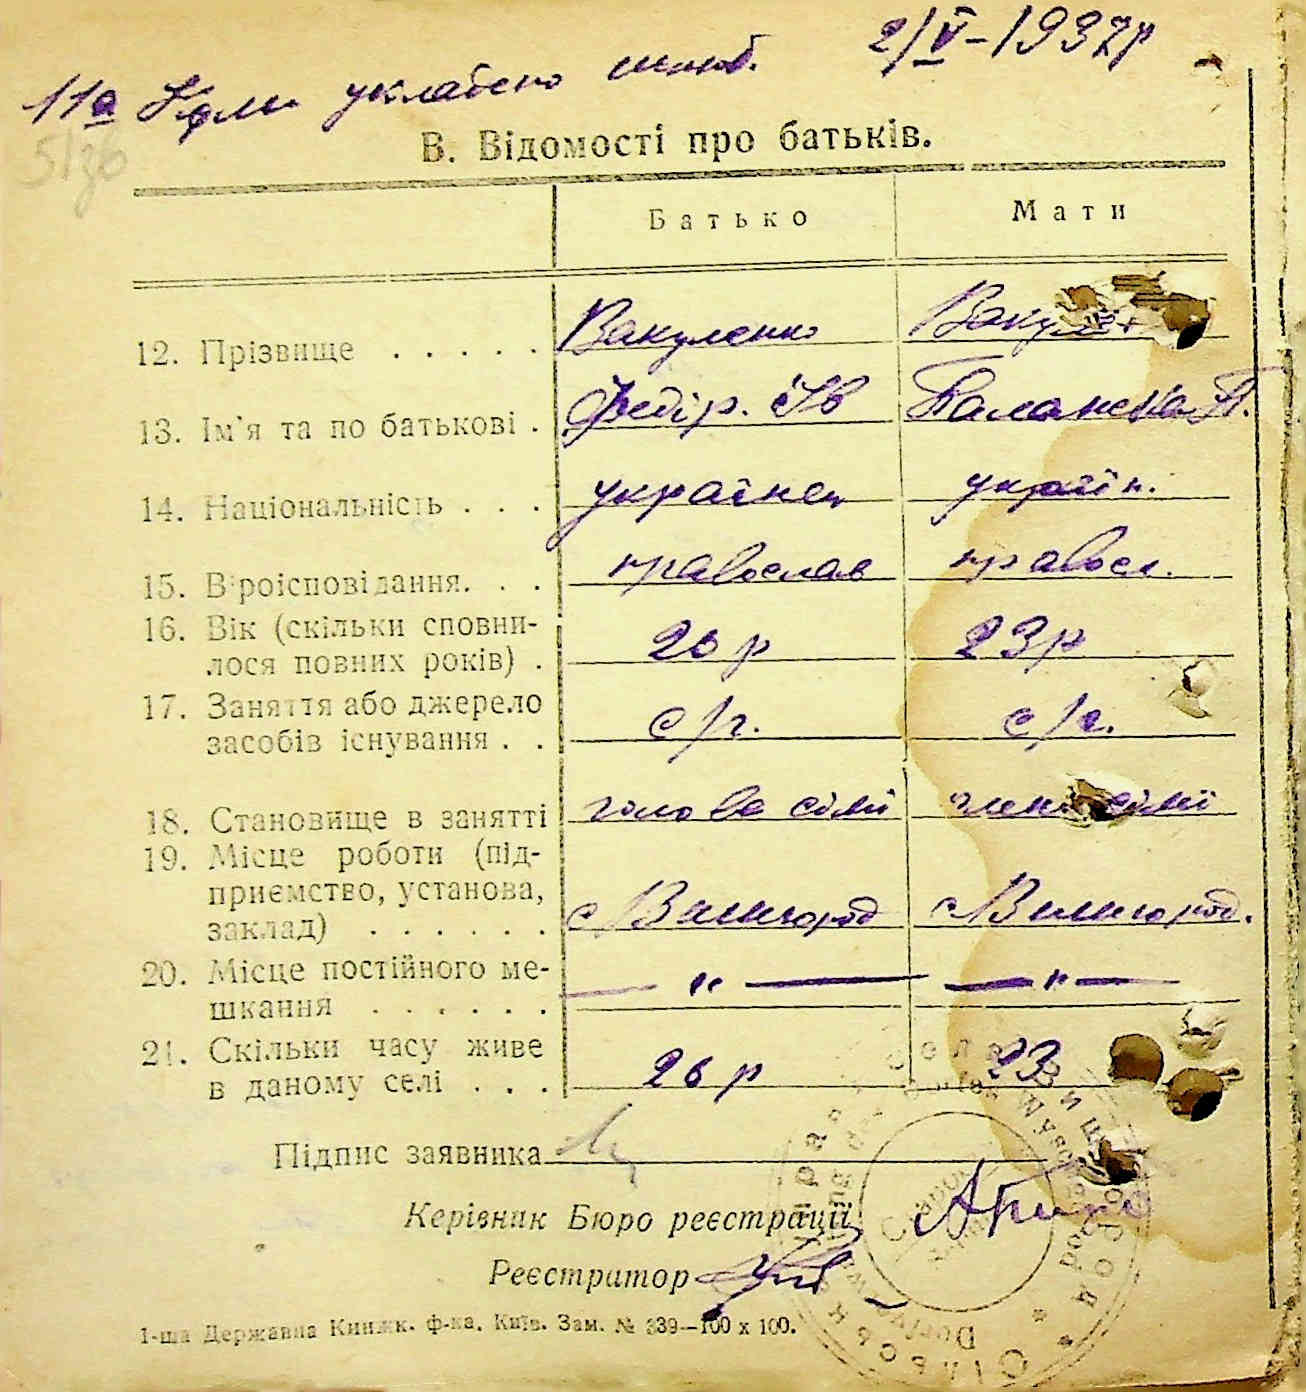 11а Коли укладено шлюб. 2/V-1937р
В. Відомості про батьків.
Батько Мати
12. Прізвище . . . . . Вакуленко Вакулен
13. Ім'я та по батькові . Федір. Ів Палажка П.
14. Національність . . . українец україн.
15. Віроісповідання. . . православ правосл.
16. Вік (скільки сповни-
лося повних років) . 26 р 23р
17. Заняття або джерело
засобів існування . . с/г. с/г.
18. Становище в занятті голова сімї член сімї
19. Місце роботи (під-
приємство, установа,
заклад) . . . . . . с Вишгород с Вишгород.
20. Місце постійного ме-
шкання . . . . . . — „ — — „ —
21. Скільки часу живе
в даному селі . . . 26 р 23
Підпис заявника
Керівник Бюро реєстрації
Реєстратор
1-ша Державна Книжк. ф-ка. Київ. Зам. № 339—100 х 100.